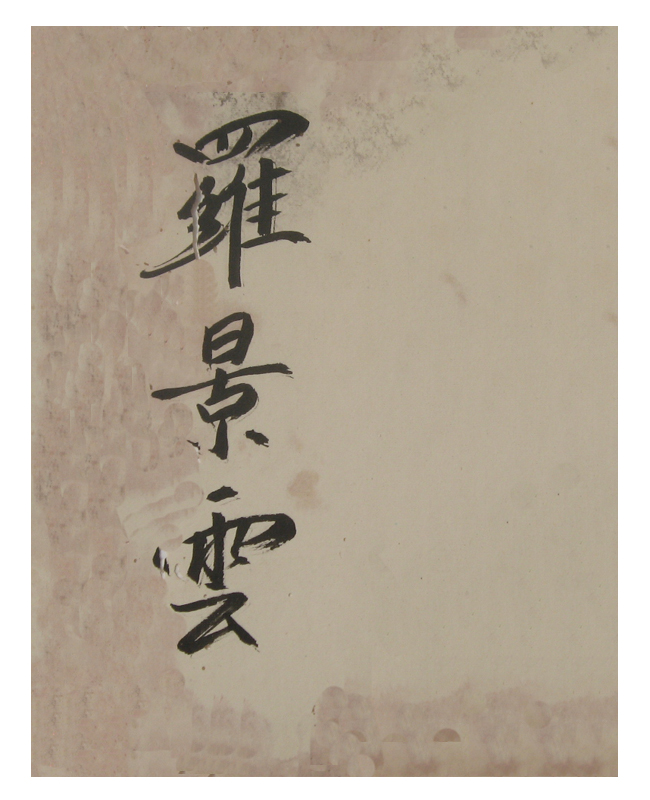 羅景雲